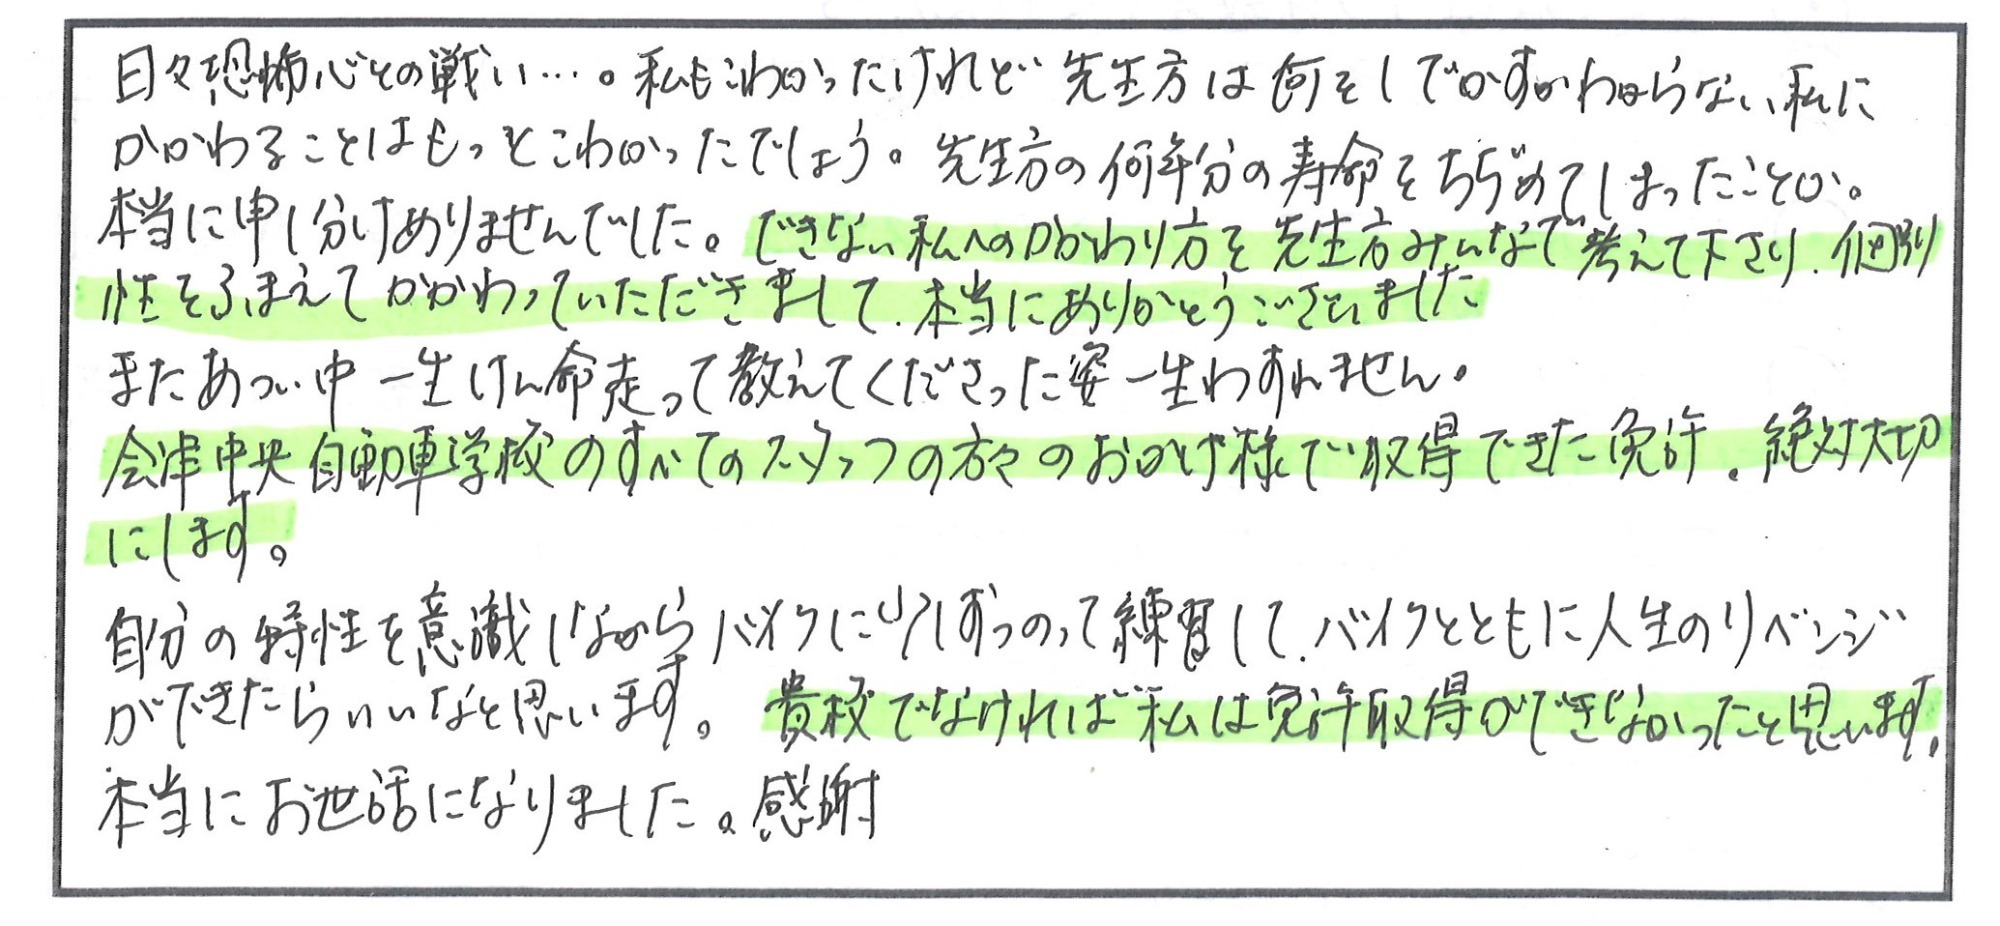 日々恐怖心との戦い…。私もこわかったけれど先生方は何をしでかすかわからない私に
かかわることはもっとこわかったでしょう。先生方の何年分の寿命をちぢめてしまったことか。
本当に申し分けありませんでした。できない私へのかかわり方を先生方みんなで考えて下さり、個別
性をふまえてかかわっていただきまして、本当にありがとうございました
またあつい中一生けん命走って教えてくださった姿一生わすれません。
会津中央自動車学校のすべてのスタッフの方々のおかげ様で取得できた免許、絶対大切
にします。
自分の特性を意識しながらバイクに少しずつのって練習して、バイクとともに人生のリベンジ
ができたらいいなと思います。貴校でなければ私は免許取得ができなかったと思います。
本当にお世話になりました。感謝